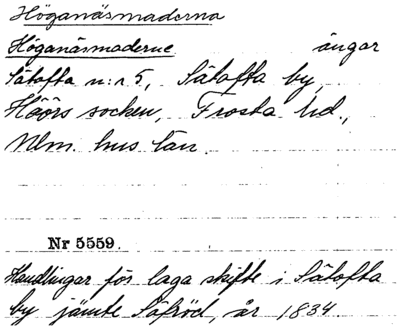 Höganäsmaderna
Höganäsmaderne ängar
Sätofta n:r 5, Sätofta by,
Höörs socken, Frosta hd.,
Mlm. hus län.
Nr 5559.
Handlingar för laga skifte i Sätofta
by jämte Säfröd, år 1834